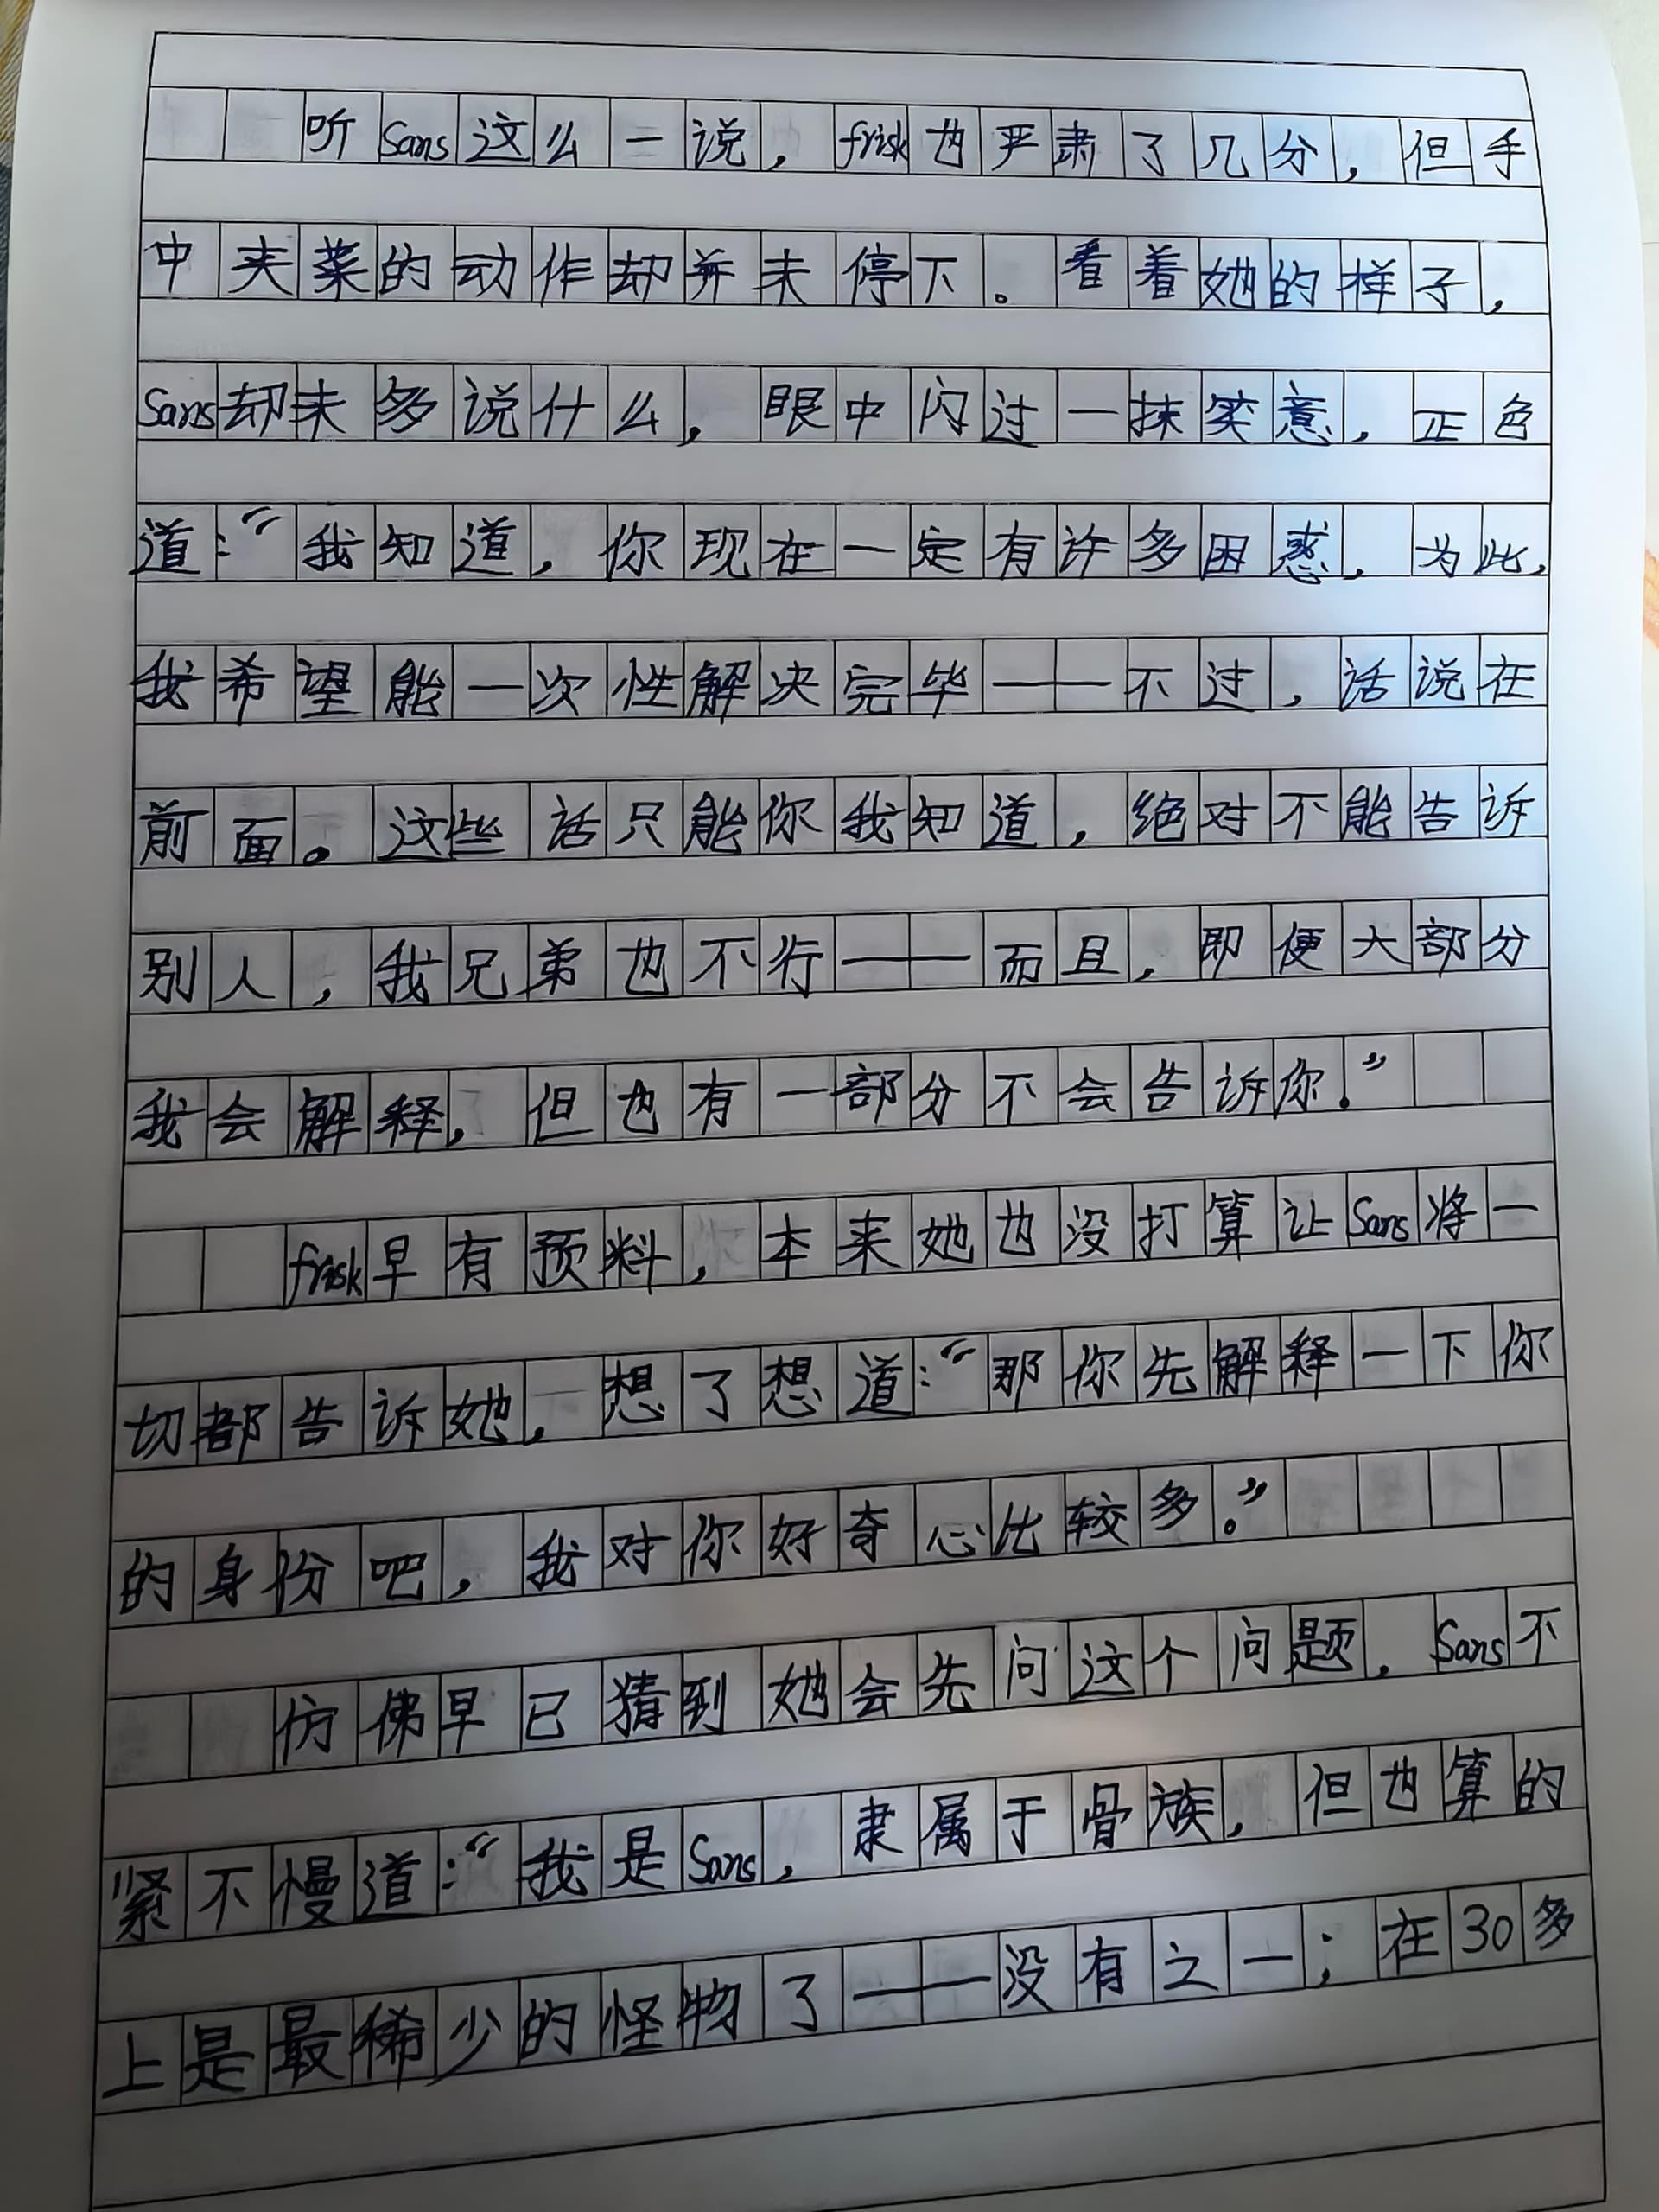 听Sans这么一说，frisk也严肃了几分，但手
中夹菜的动作却并未停下。看着她的样子，
Sans却未多说什么，眼中闪过一抹笑意，正色
道：“我知道，你现在一定有许多困惑，为此，
我希望能一次性解决完毕——不过，话说在
前面。这些话只能你我知道，绝对不能告诉
别人，我兄弟也不行——而且，即便大部分
我会解释，但也有一部分不会告诉你。”
frisk早有预料，本来她也没打算让Sans将一
切都告诉她，想了想道：“那你先解释一下你
的身份吧，我对你好奇心比较多。”
仿佛早已猜到她会先问这个问题，Sans不
紧不慢道：“我是Sans，隶属于骨族，但也算的
上是最稀少的怪物了——没有之一；在30多